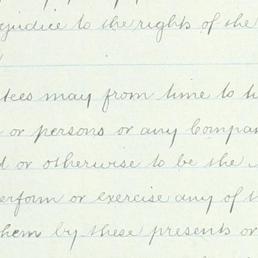 ejudice to the rights of the
tees may from time to ti
or persons or any Compan
d or otherwise to be the
erform or exercise any of t
hem by these presents or